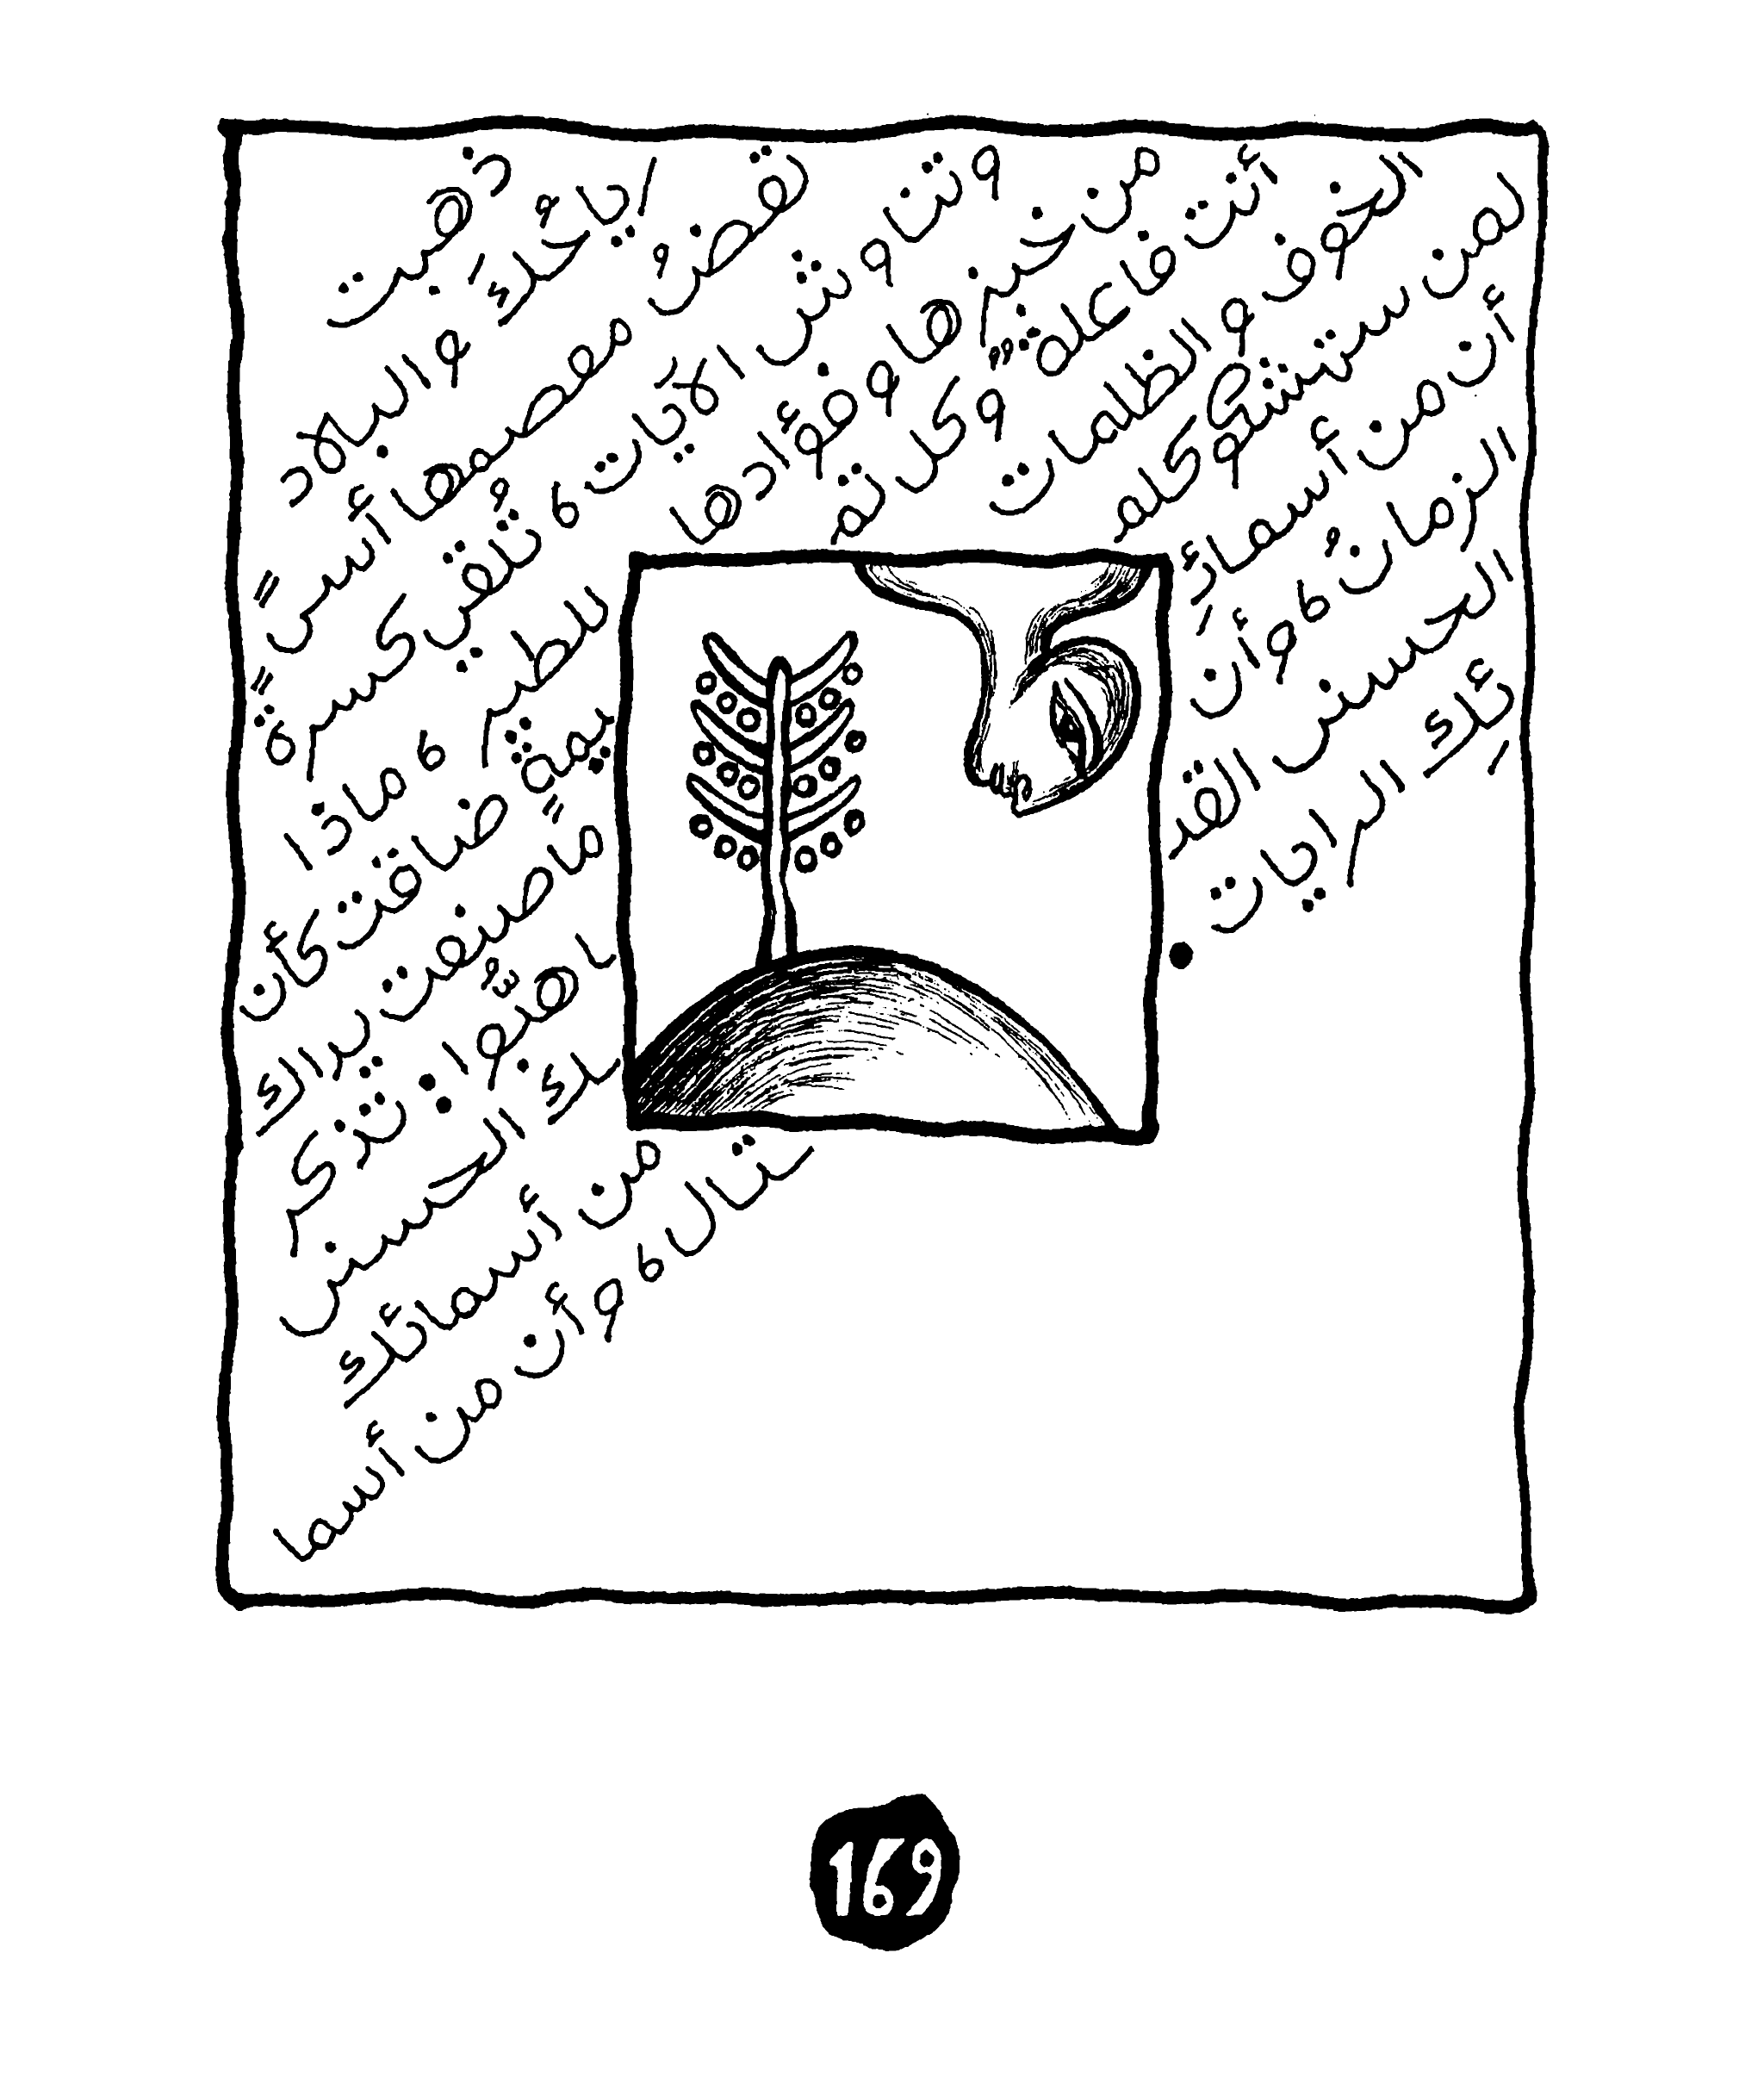 ذهبت
رياحُكَ والبلاد
تعضُ معصمها أسىً
وتنوش الآيات، تُلقي كسرةً
من خبزها وفؤادها للطير، ماذا
أنت فاعلةٌ وكل تميمةٍ ضاقت كأن
الخوف والظلمات مما صنعت يداك
لمن ستشكو كلما اهتزّوا. تذكر
أن من أسمائك الحسنى
الزمانُ، وأن من أسمائك
الحسنى القتال، وأن من أسما
ئكِ الرايات.
169